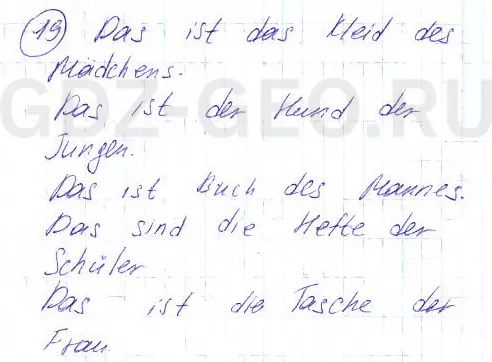 19) Das ist das Kleid des
Mädchens.
GDZ-GEO.RU
Das ist der Hund der
Jungen.
Das ist Buch des Mannes.
Das sind die Hefte der
Schüler
Das ist die Tasche der
Frau.